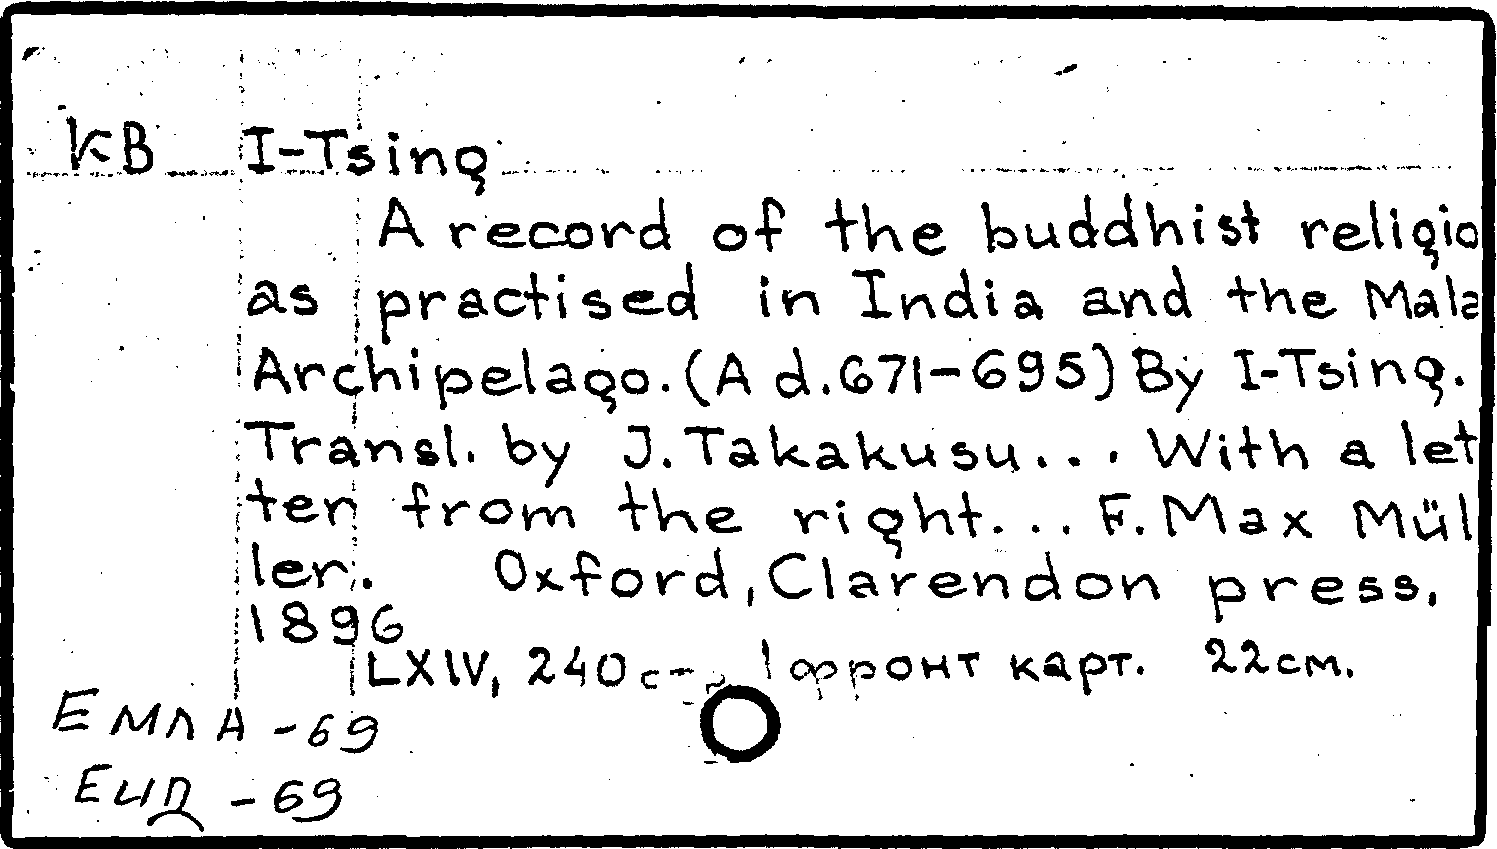 КВ I-Tsing
A record of the buddhist religio
as practised in India and the Mala
Archipelago. (A d. 671-695) By I-Tsing.
Transl. by J. Takakusu... With a let
ter from the right... F. Max Mül
ler. Oxford, Clarendon press,
1896
LXIV, 240 с-р, 1 фронт карт. 22см.
Е МЛ А - 69
ЕИД - 69